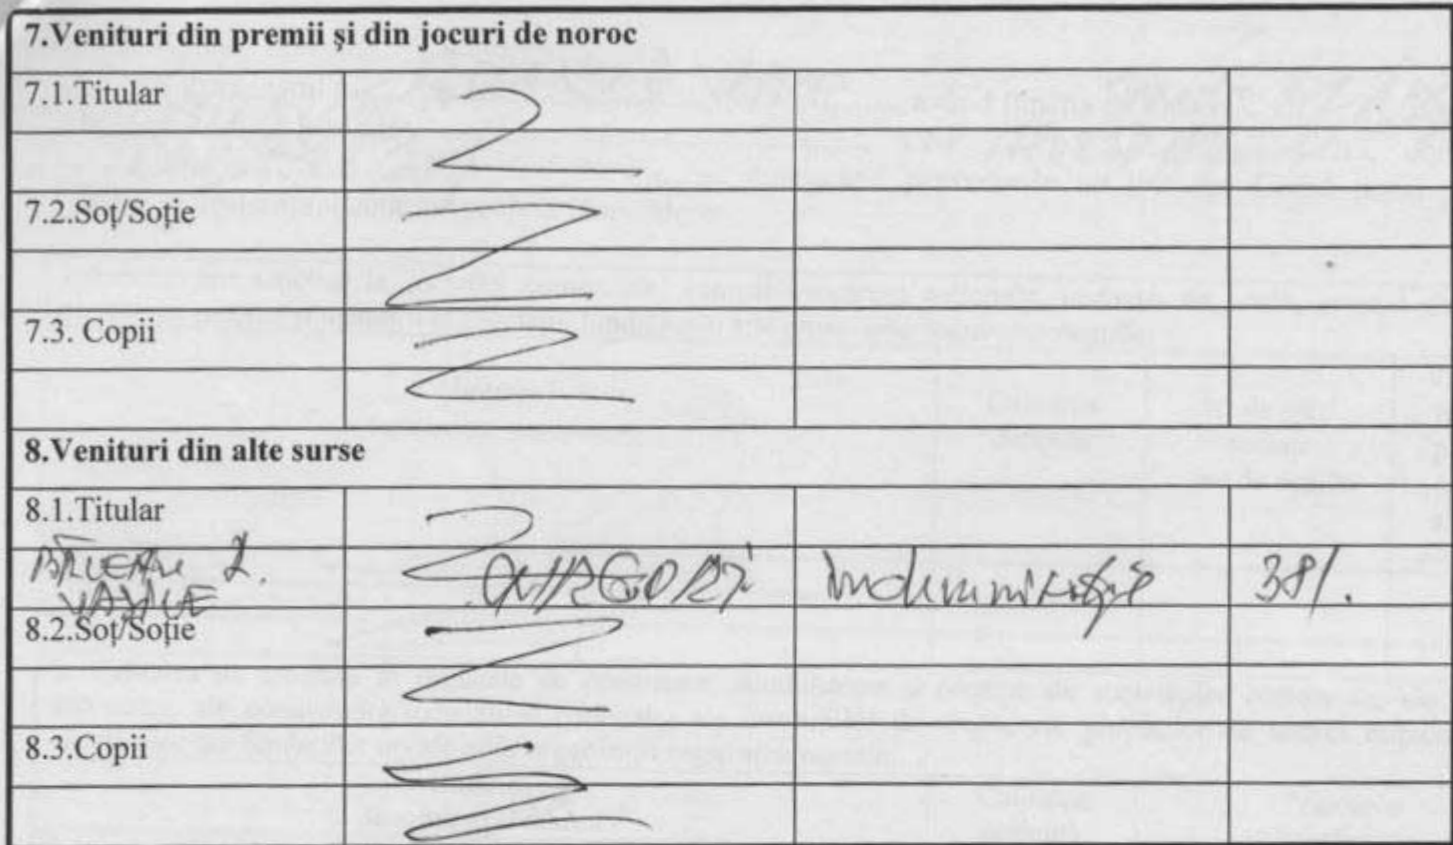 7.Venituri din premii și din jocuri de noroc
7.1.Titular
7.2.Soț/Soție
7.3. Copii
8.Venituri din alte surse
8.1.Titular
VASILE
Indemnizație
8.2.Soț/Soție
8.3.Copii